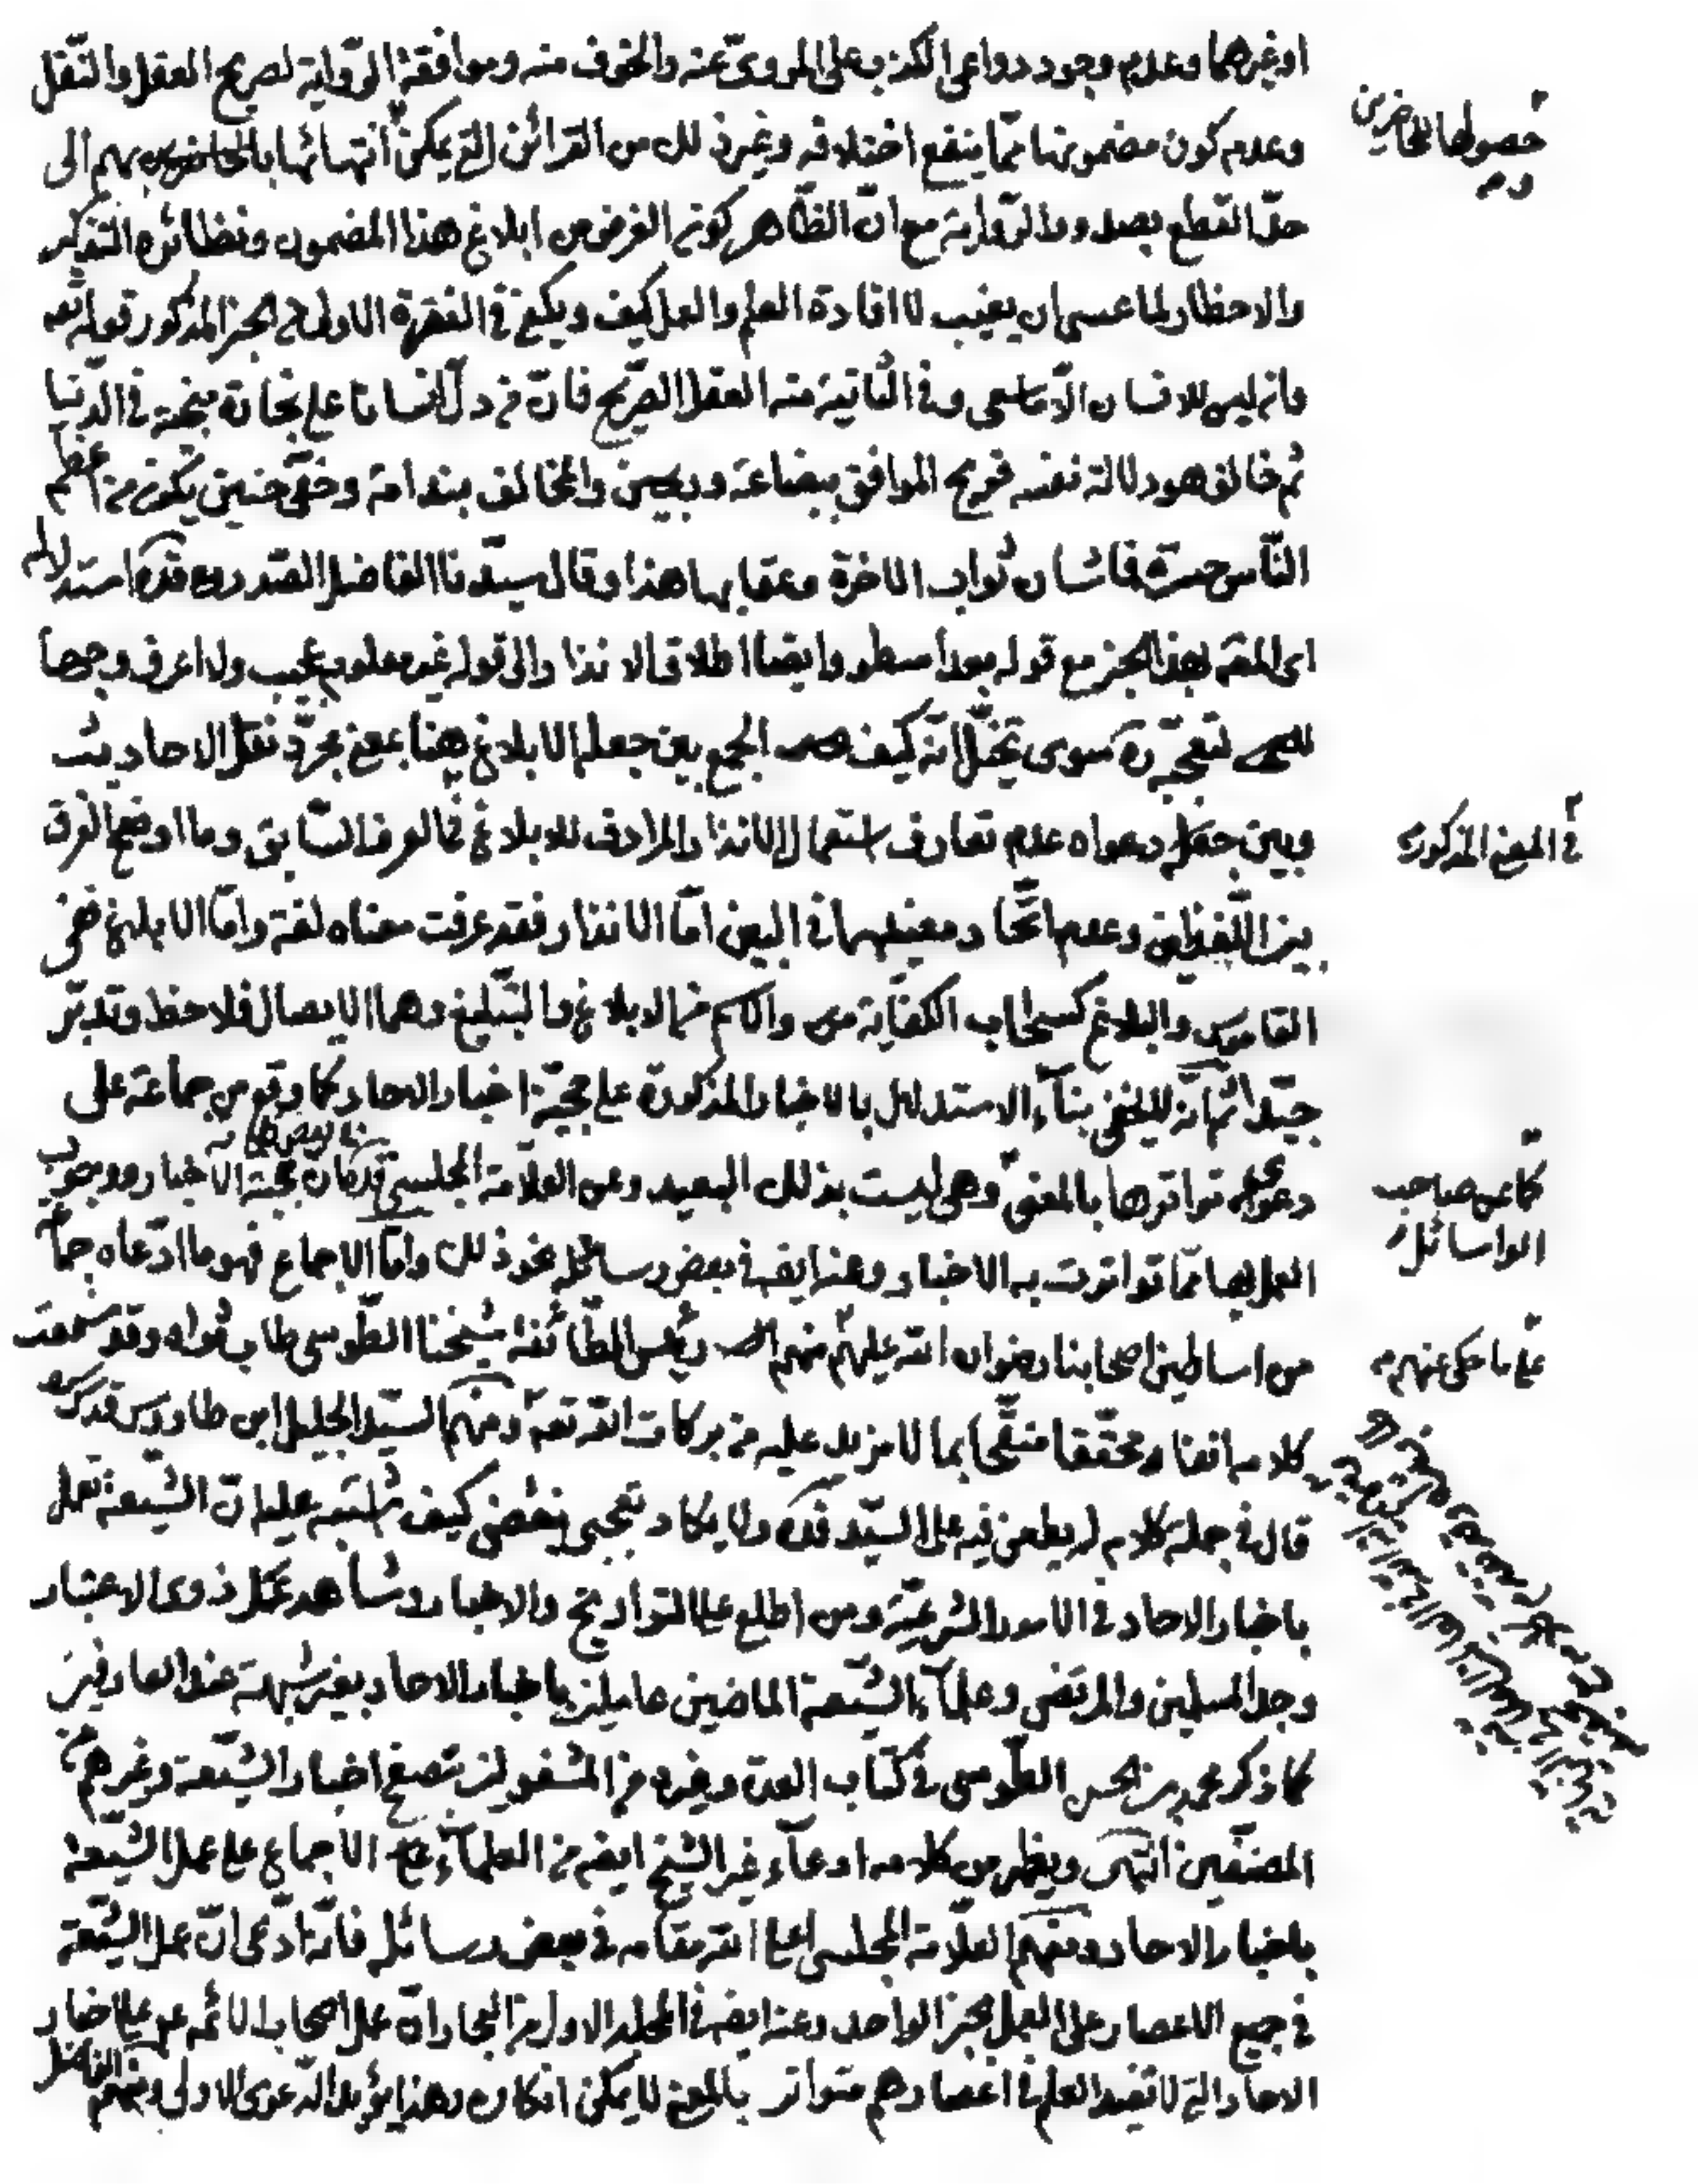 اوغيرهما وعدم وجود دواعى الكذب على المروىّ عنه والخوف منه وموافقة الرّواية لصريح العقل والنّقل
وعدم كون مضمونها ممّا ينفع اختلاقه وغير ذلك من القرائن الّتى يمكن انتهائها بهم الى
حصولها للحاضرين
حدّ القطع بصدور الرّواية مع انّ الظّاهر كون الغرض من ابلاغ هذا المضمون ونظائره التذكير
والاحظار لما عسى ان يغيب لا افادة العلم والعمل كيف ويكفى فى الفقرة الاولى فى الخبر المذكور قوله تعه
وان ليس للانسان الّا ما سعى وفى الثّانية منه العقل الصّريح فانّ من دلّ انسانا على تجارة منجية فى الدّنيا
ثم خالف هو دلالة نفسه فربح الموافق ببضاعة والمخالف بندامة وخفّى حنين يكون من اعظم
النّاس حسرة فما شان ثواب الاخرة وعقابها هذا وقال سيّدنا الفاضل الصّدر قدّه استدلاله
اى المقّه بهذا الخبر مع قوله بعد اسطر وايضا اطلاق الانذار الى قوله غير معلوم عجيب ولا اعرف وجها
لتعجّبه ره سوى تخيّل انّه كيف الجمع بين جعله الابلاغ هنا بمعنى مجرّد نقل الاحاديث
وبين دعواه عدم تعارف استعمال الانذار المرادف للابلاغ فى العرف السّابق وما اوضح الفرق
فى المعنى المذكور
بين اللّفظين وعدم اتّحاد معنييهما فى البين امّا الانذار فقد عرفت معناه لغة وامّا الابلاغ ففى
القاموس والبلاغ كسحاب الكفاية والاسم من الابلاغ والتّبليغ وهما الايصال فلاحظ وتدبّر
جيّدا ثمّ انّه لا يخفى بناء الاستدلال بالاخبار المذكورة على حجّيّة اخبار الاحاد كما وقع من جماعة على
دعوى تواترها بالمعنى وهى ليست بذلك البعيد وعن العلّامة المجلسى قدّه انّ حجّية الاخبار ووجوب
كما عن صاحب
الوسائل
العمل بها ممّا تواترت به الاخبار وعنه ايضه فى بعض رسائله نحو ذلك وامّا الاجماع فهو ما ادّعاه جمّ
من اساطين اصحابنا رضوان الله عليهم منهم رئيس الطّائفة شيخنا الطّوسى طاب ثراه وقد سمعت
على ما حكى عنهم
كلامه انفا ومحقّقا منقّحا بما لا مزيد عليه من بركات الله تعه ومنهم السيّد الجليل ابن طاووس قدّس سره
قال فى جملة كلام له يطعن فيه على السيّد قدّه ولا يكاد تعجبى ينقضى كيف اشتبه عليه انّ الشّيعة تعمل
باخبار الاحاد فى الامور الشرعيّة ومن اطلع على التواريخ والاخبار وشاهد عمل ذوى الاعتبار
وجد المسلمين والمرتضى وعلماء الشّيعة الماضين عاملين باخبار الاحاد بغير شبهة عند العارفين
كما ذكر محمد بن الحسن الطّوسى فى كتاب العدة وغيره من المشغولين بتصفح اخبار الشّيعة وغيرهم من
المصنّفين انتهى ويظهر من كلامه ادعاء غير الشّيخ ايضه من العلماء الاجماع على عمل الشّيعة
باخبار الاحاد ومنهم العلّامة المجلسى اعلى الله مقامه فى بعض رسائله فانّه ادّعى انّ عمل الشّيعة
فى جميع الاعصار على العمل بخبر الواحد وعنه ايضه فى المجلد الاول من البحار انّ عمل اصحاب الائمّه ع على اخبار
الاحاد الّتى لا تفيد العلم فى اعصارهم متواتر بالمعنى لا يمكن انكاره وهذا يؤيد الدّعوى الاولى ومنهم الفاضل